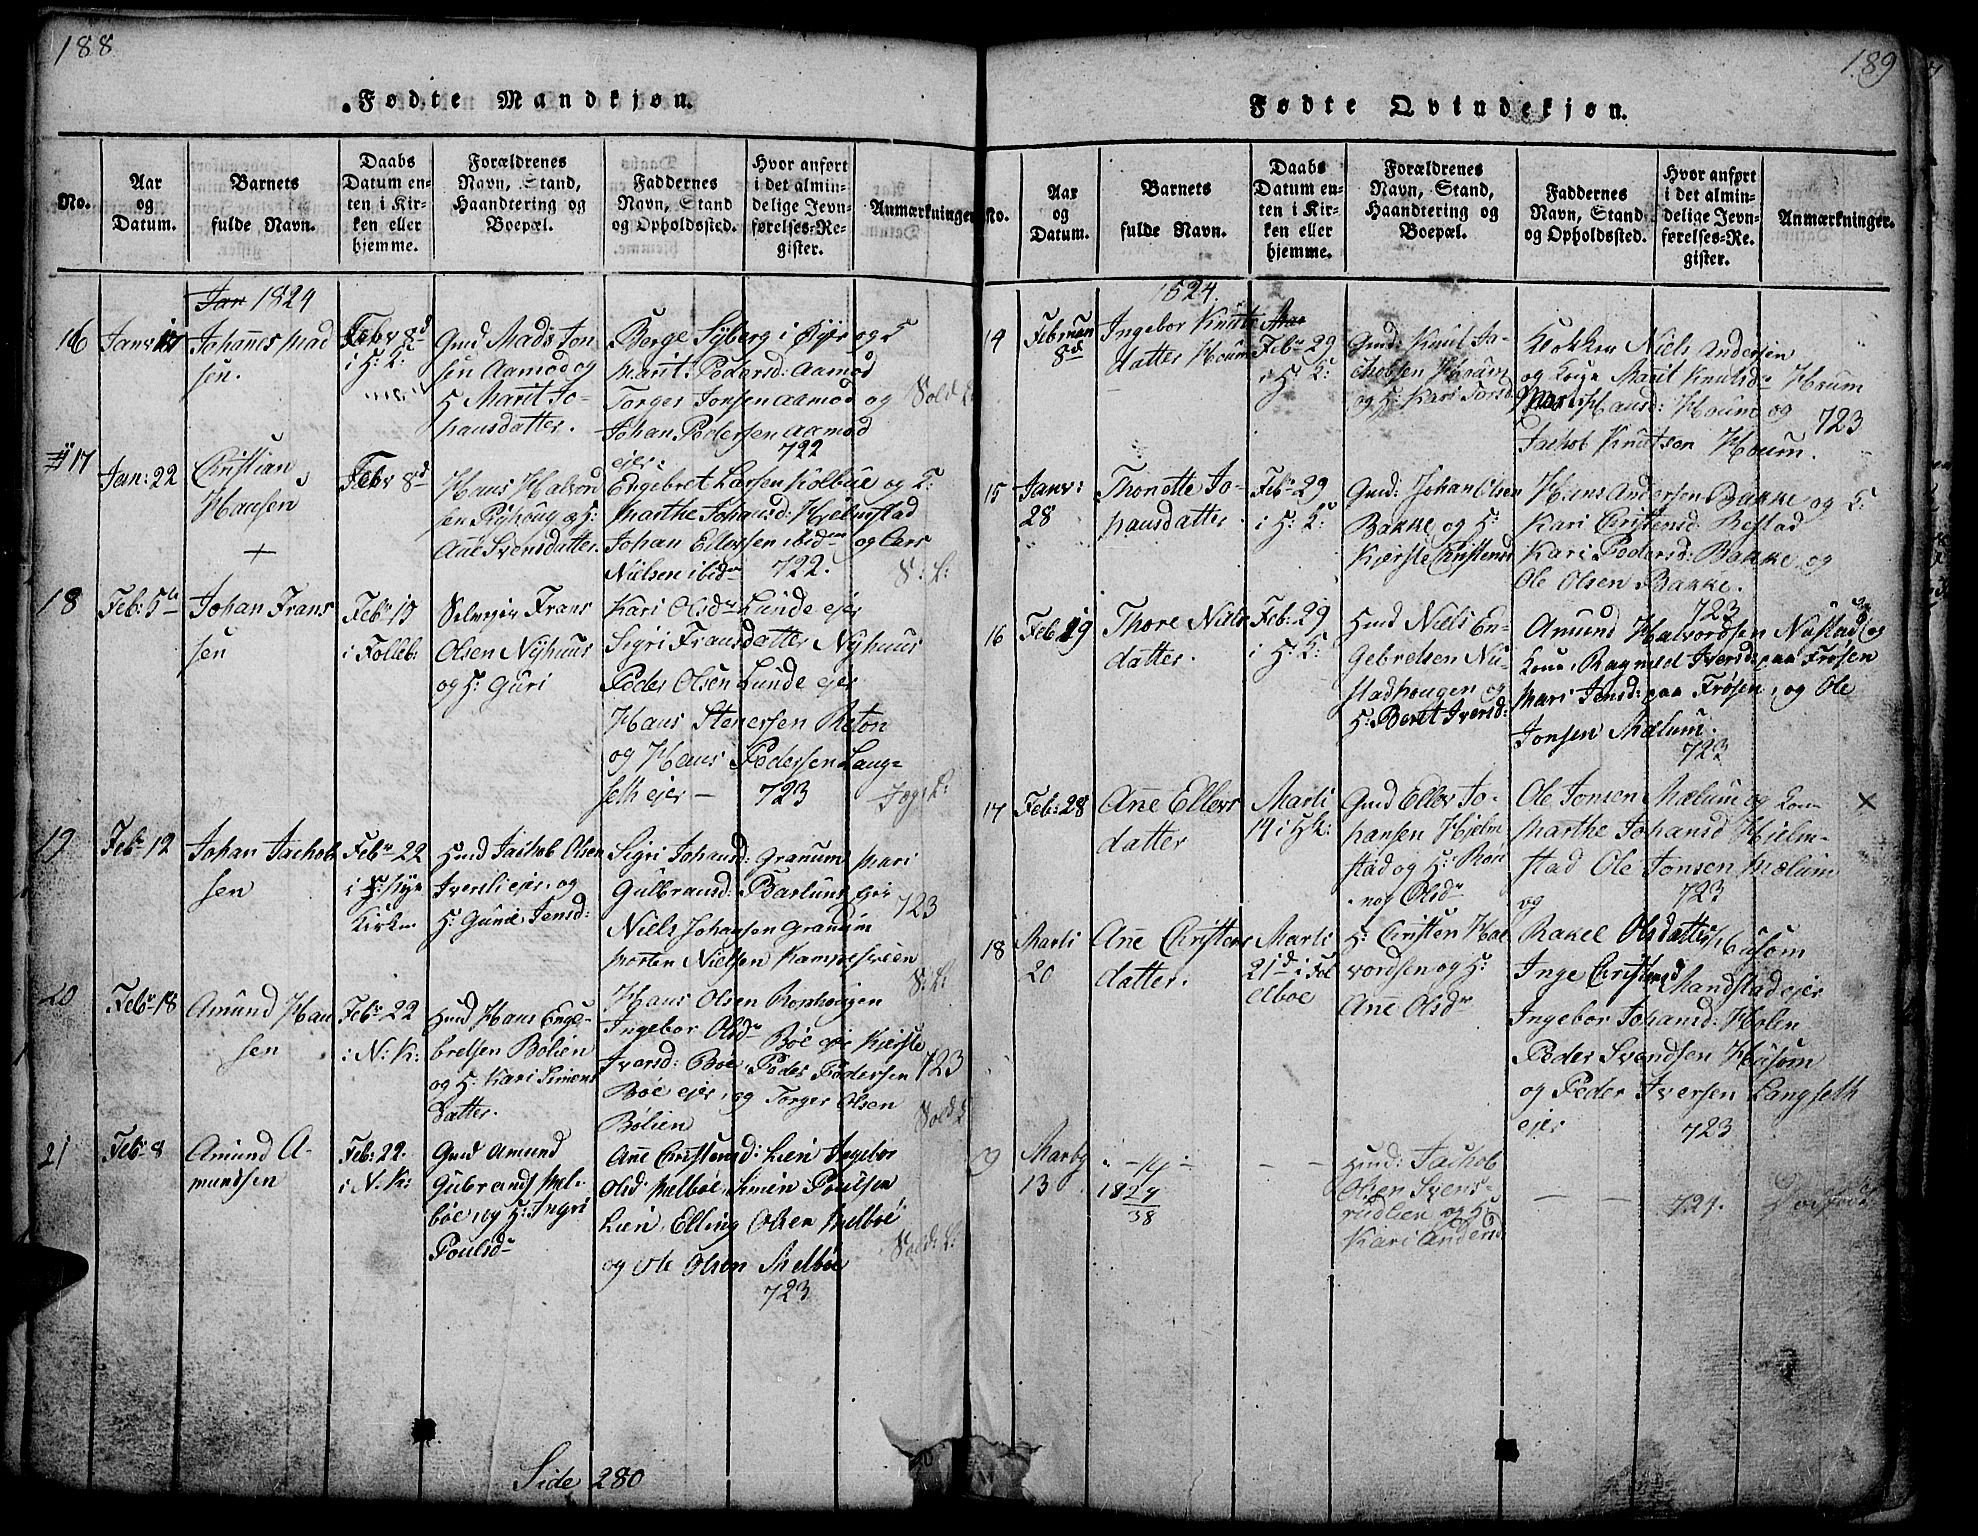 188
Fødte Mandkjøn.
No.
Aar
og
Datum.
Barnets
fulde Navn.
Daabs
Datum en-
ten i Kir-
ken eller
hjemme.
Forældrenes
Navn, Stand,
Haandtering og
Boepæl.
Faddernes
Navn, Stand
og Opholdssted.
Hvor anført
i det almin-
delige Jevn-
førelses-Re-
gister.
Anmærkninger
1824
16
Janv 17
Johannes Mad
sen.
Febr 8d
i H: K:
Gmd Mads Jon
sen Aamod og
H Marit Jo-
hansdatter.
Børge Syberg i Øyer og H
Marit Pedersd: Aamod
Torger Jonsen Aamod og
Johan Pedersen Aamod
ejer.
722
17
Jan: 22
Christian
Hansen
+
Febr 8d
Hans Halvord
sen Ryhoug og H:
Ane Svensdatter.
Engebret Larsen Kolbue og K:
Marthe Johansd: Hjelmstad
Johan Ellevsen ibidm og Lars
Nielsen ibidm 722.
S: L:
18
Feb: 5te
Johan Frans
sen
Febr 15
i Folleb:
Selvejer Frans
Olsen Nyhuus
og H: Guri
Kari Olsdr Lunde ejer
Sigri Fransdatter Nyhuus
Peder Olsen Lunde ejer
Hans Stenersen
og Hans Pedersen Lang-
seth ejer — 723
19
Febr 12
Johan Jachob
sen
Febr 22
Kirke
Hmd Jachob Olsen
Iverslie ejer, og
H: Guné Jensd:
Sigri Johansd: Granum Mari
Gulbransd: Barlund ejer
Niels Johansen Granum
Morten Nielsen Kampesveen
723
S: L:
20
Febr 18
Amund Han
sen
Febr 22
i N: K:
Hmd Hans Enge-
bretsen Bølien
og H: Kari Simens
datter.
Hans Olsen Romhougen
Ingebor Olsdr Bøe ejer Kjerste
Iversd: Bøe, Peder Pedersen
Bøe ejer, og Torger Olsen
Bølien
723
21
Feb: 8
Amund A-
mundsen
Feb: 22
i N: K:
Gmd Amund
Gulbrands Mel-
bøe, og H: Ingri
Poulsdr
Ane Christensd: Lien Ingebor
Olsd Melboe, Simen Poulsen
Lien, Elling Olsen Melboe
og Ole Olsen Melboe
723
Side 280
189
Fødte Qvindekjøn.
No.
Aar
og
Datum.
Barnets
fulde Navn.
Daabs
Datum en-
ten i Kir-
ken eller
hjemme.
Forældrenes
Navn, Stand,
Haandtering og
Boepæl.
Faddernes
Navn, Stand
og Opholdssted.
Hvor anført
i det almin-
delige Jevn-
førelses-Re-
gister.
Anmærkninger.
1824.
14
Februar
8d
Ingebor Knuts
datter Houm
Febr 29
i H: K:
Gmd: Knut Ja-
chobsen Houm
og H: Kari Torsd
Klokker Niels Andersen
og Kone Marit Knutsdr Houm
Mari Hansd: Houm og
Jachob Knutsen Houm.
723
15
Janv:
28
Thonette Jo-
hansdatter
Febr 29
i H: K:
Gmd: Johan Olsen
Bakke og H:
Kjerste Christensd
Hans Andersen Bakke og K:
Kari Christensd Restad
Kari Pedersd: Bakke og
Ole Olsen Bakke.
723
16
Feb: 19
Thore Niels
datter.
Feb: 29
i H: K:
Hmd Niels En-
gebretsen Nu-
stadhougen og
H: Beret Iversd:
Amund Halvordsen Nustad og
Kone, Ragnild Iversd: paa Frøsen
Mari Jensd: paa Frøsen, og Ole
Jonsen Mælum.
723
17
Feb: 28
Ane Ellevs
datter
Marti
14 i H K:
Gmd Ellev Jo-
hansen Hjelm
stad og H: Røn-
nog Olsdr
Ole Jonsen Mælum og Kone
Marthe Johansd Hjelm-
stad Ole Jonsen Mælum
og
723
18
Marti
20
Ane Christens
datter.
Marti
21d i Fol
elboe
H: Christen Hal
vordsen og H:
Ane Olsdr
Rakel Olsdatter Huusom
Inge Christensd Mandstad ejer
Ingebor Johansd: Holen
Peder Svendsen Huusom
og Peder Iversen Langseth
ejer
723
Marty
13
1824
38
Hmd: Jachob
Olsen Svens-
rudlien og H
Kari Andersd
724.
Dødfød